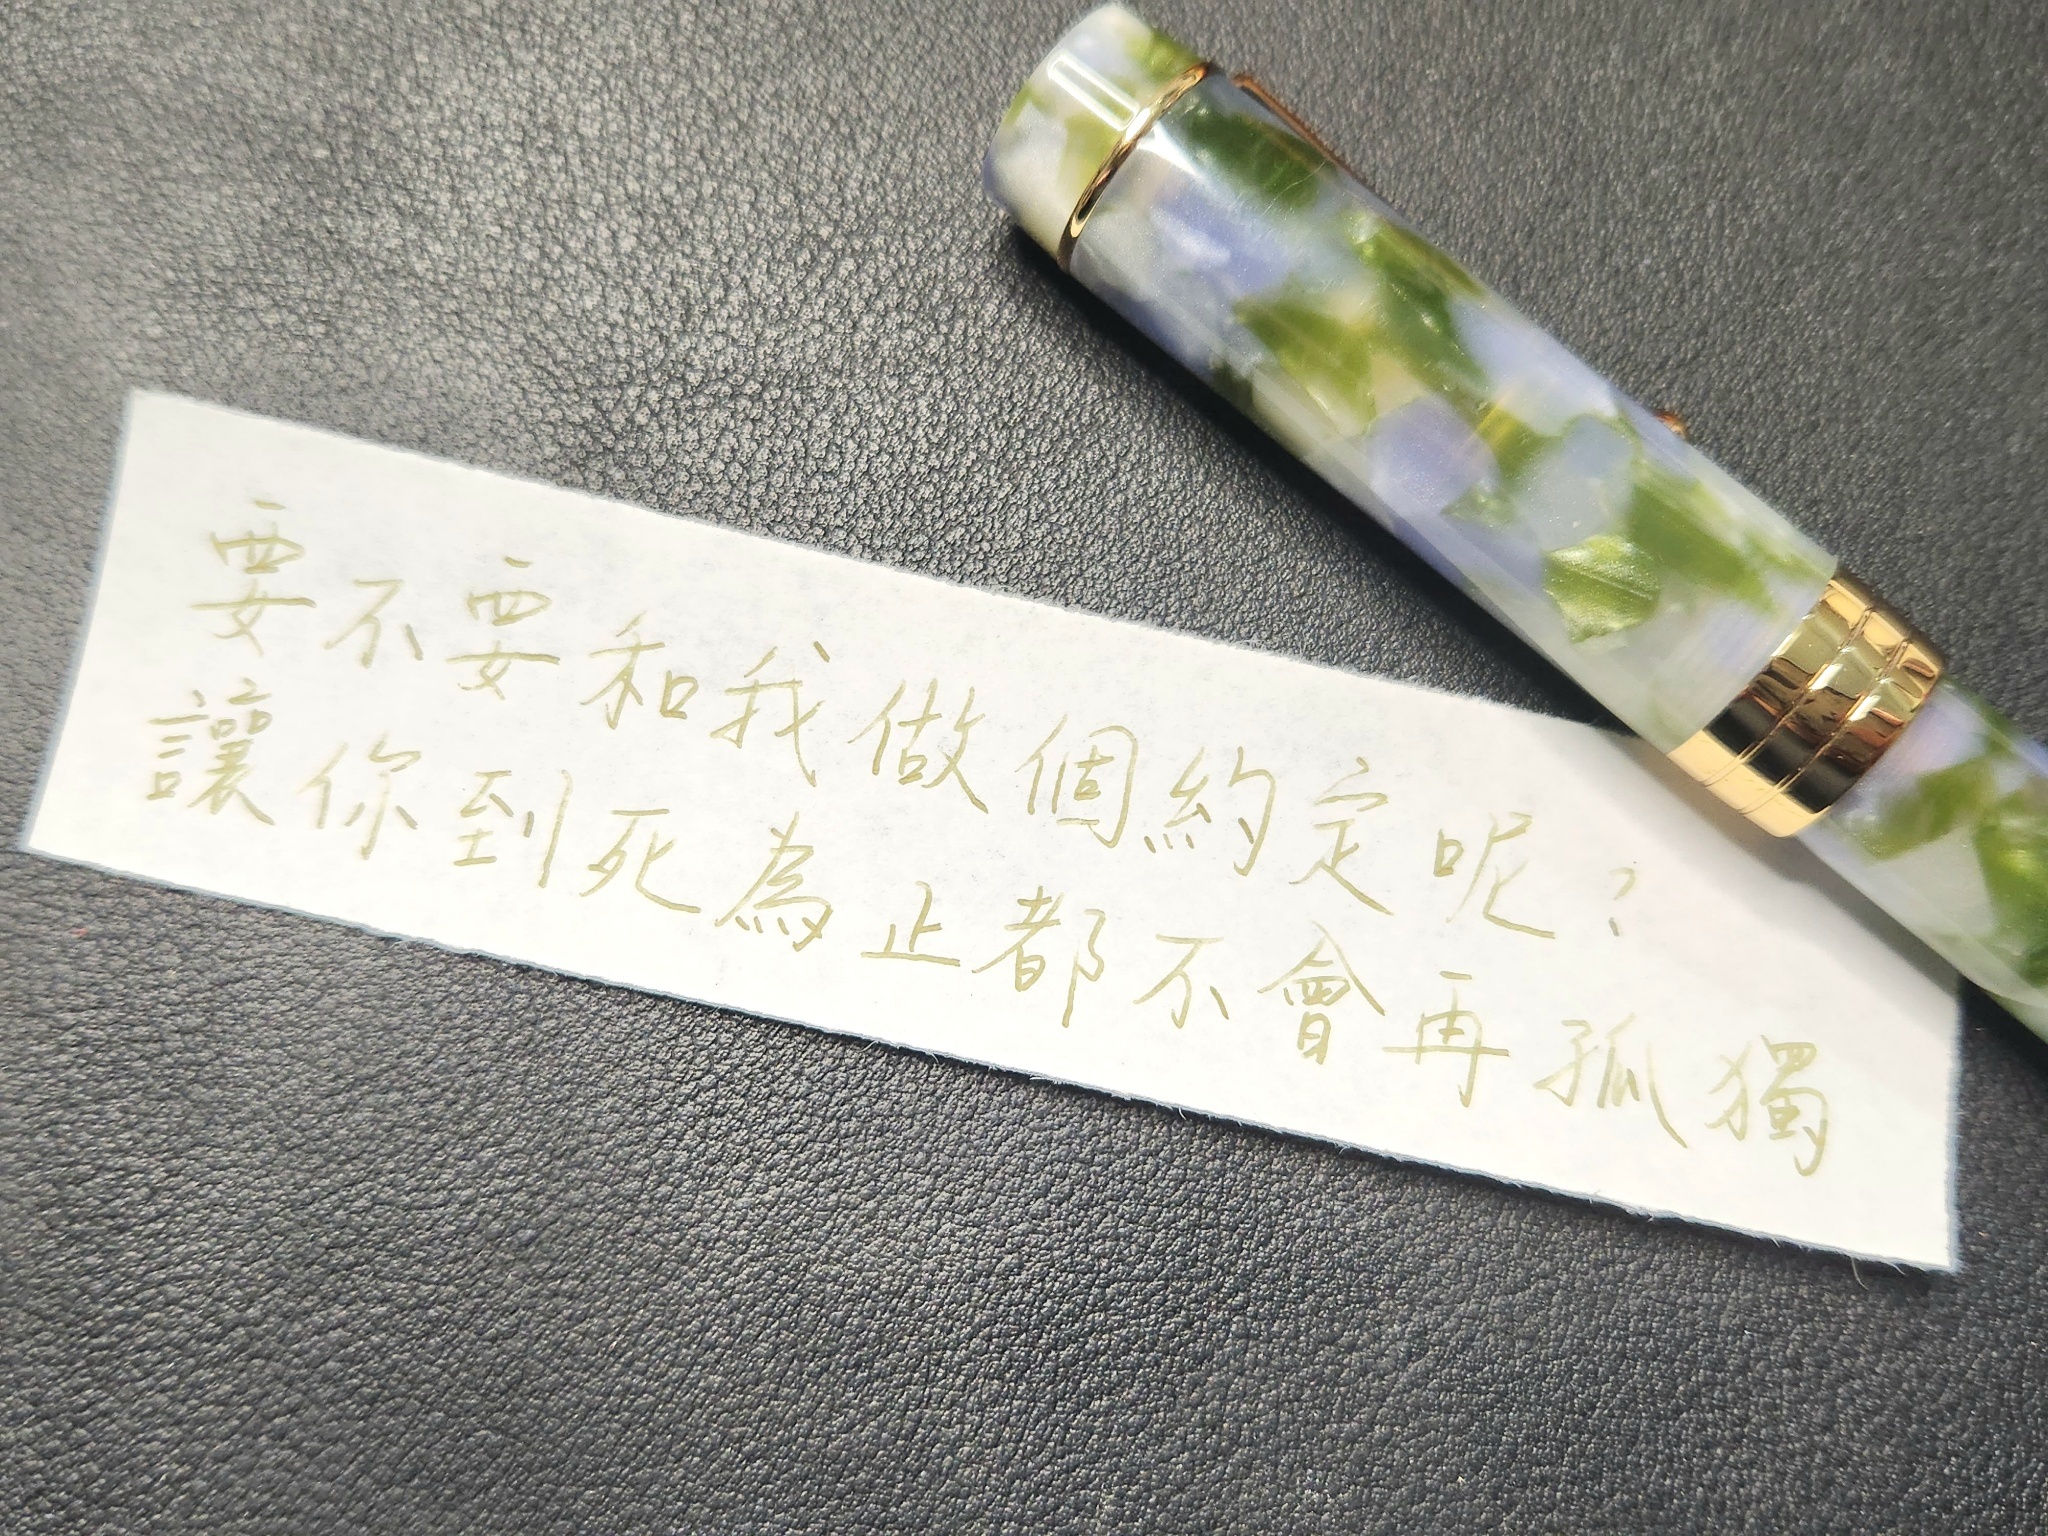 要不要和我做個約定呢?
讓你到死為止都不會再孤獨